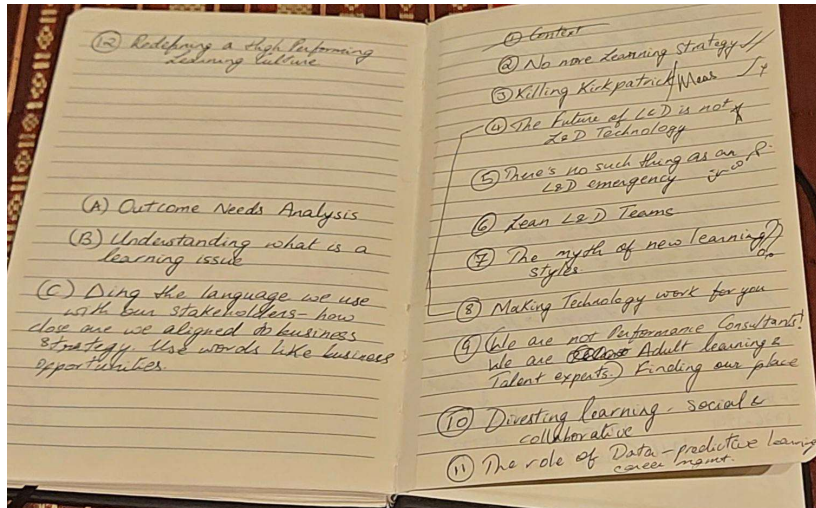 (12) Redefining a High Performing
Learning Culture
(A) Outcome Needs Analysis
(B) Understanding what is a
learning issue
(C) Ding the language we use
with our stakeholders - how
close are we aligned to business
strategy. Use words like business
opportunities.
(1) Context
(2) No more Learning Strategy
(3) Killing Kirkpatrick/Meas
(4) The Future of L&D is not
L&D Technology
(5) There's no such thing as an
L&D emergency
(6) Lean L&D Teams
(7) The myth of new learning
styles
(8) Making Technology work for you
(9) (We are not Performance Consultants!
We are Adult learning &
Talent experts.) Finding our place
(10) Divesting learning - social &
collaborative
(11) The role of Data - predictive learning
career mgmt.